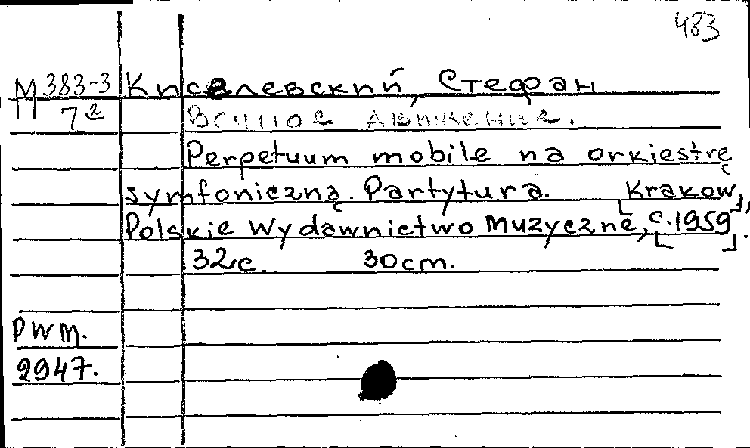 483
М 383-3 Киселевский, Стефан
7а Вечное движение.
Perpetuum mobile na orkiestrę
symfoniczną. Partytura. [Krakow],
Polskie Wydawnictwo Muzyczne, [c.1959].
32c. 30cm.
PWM.
2947.